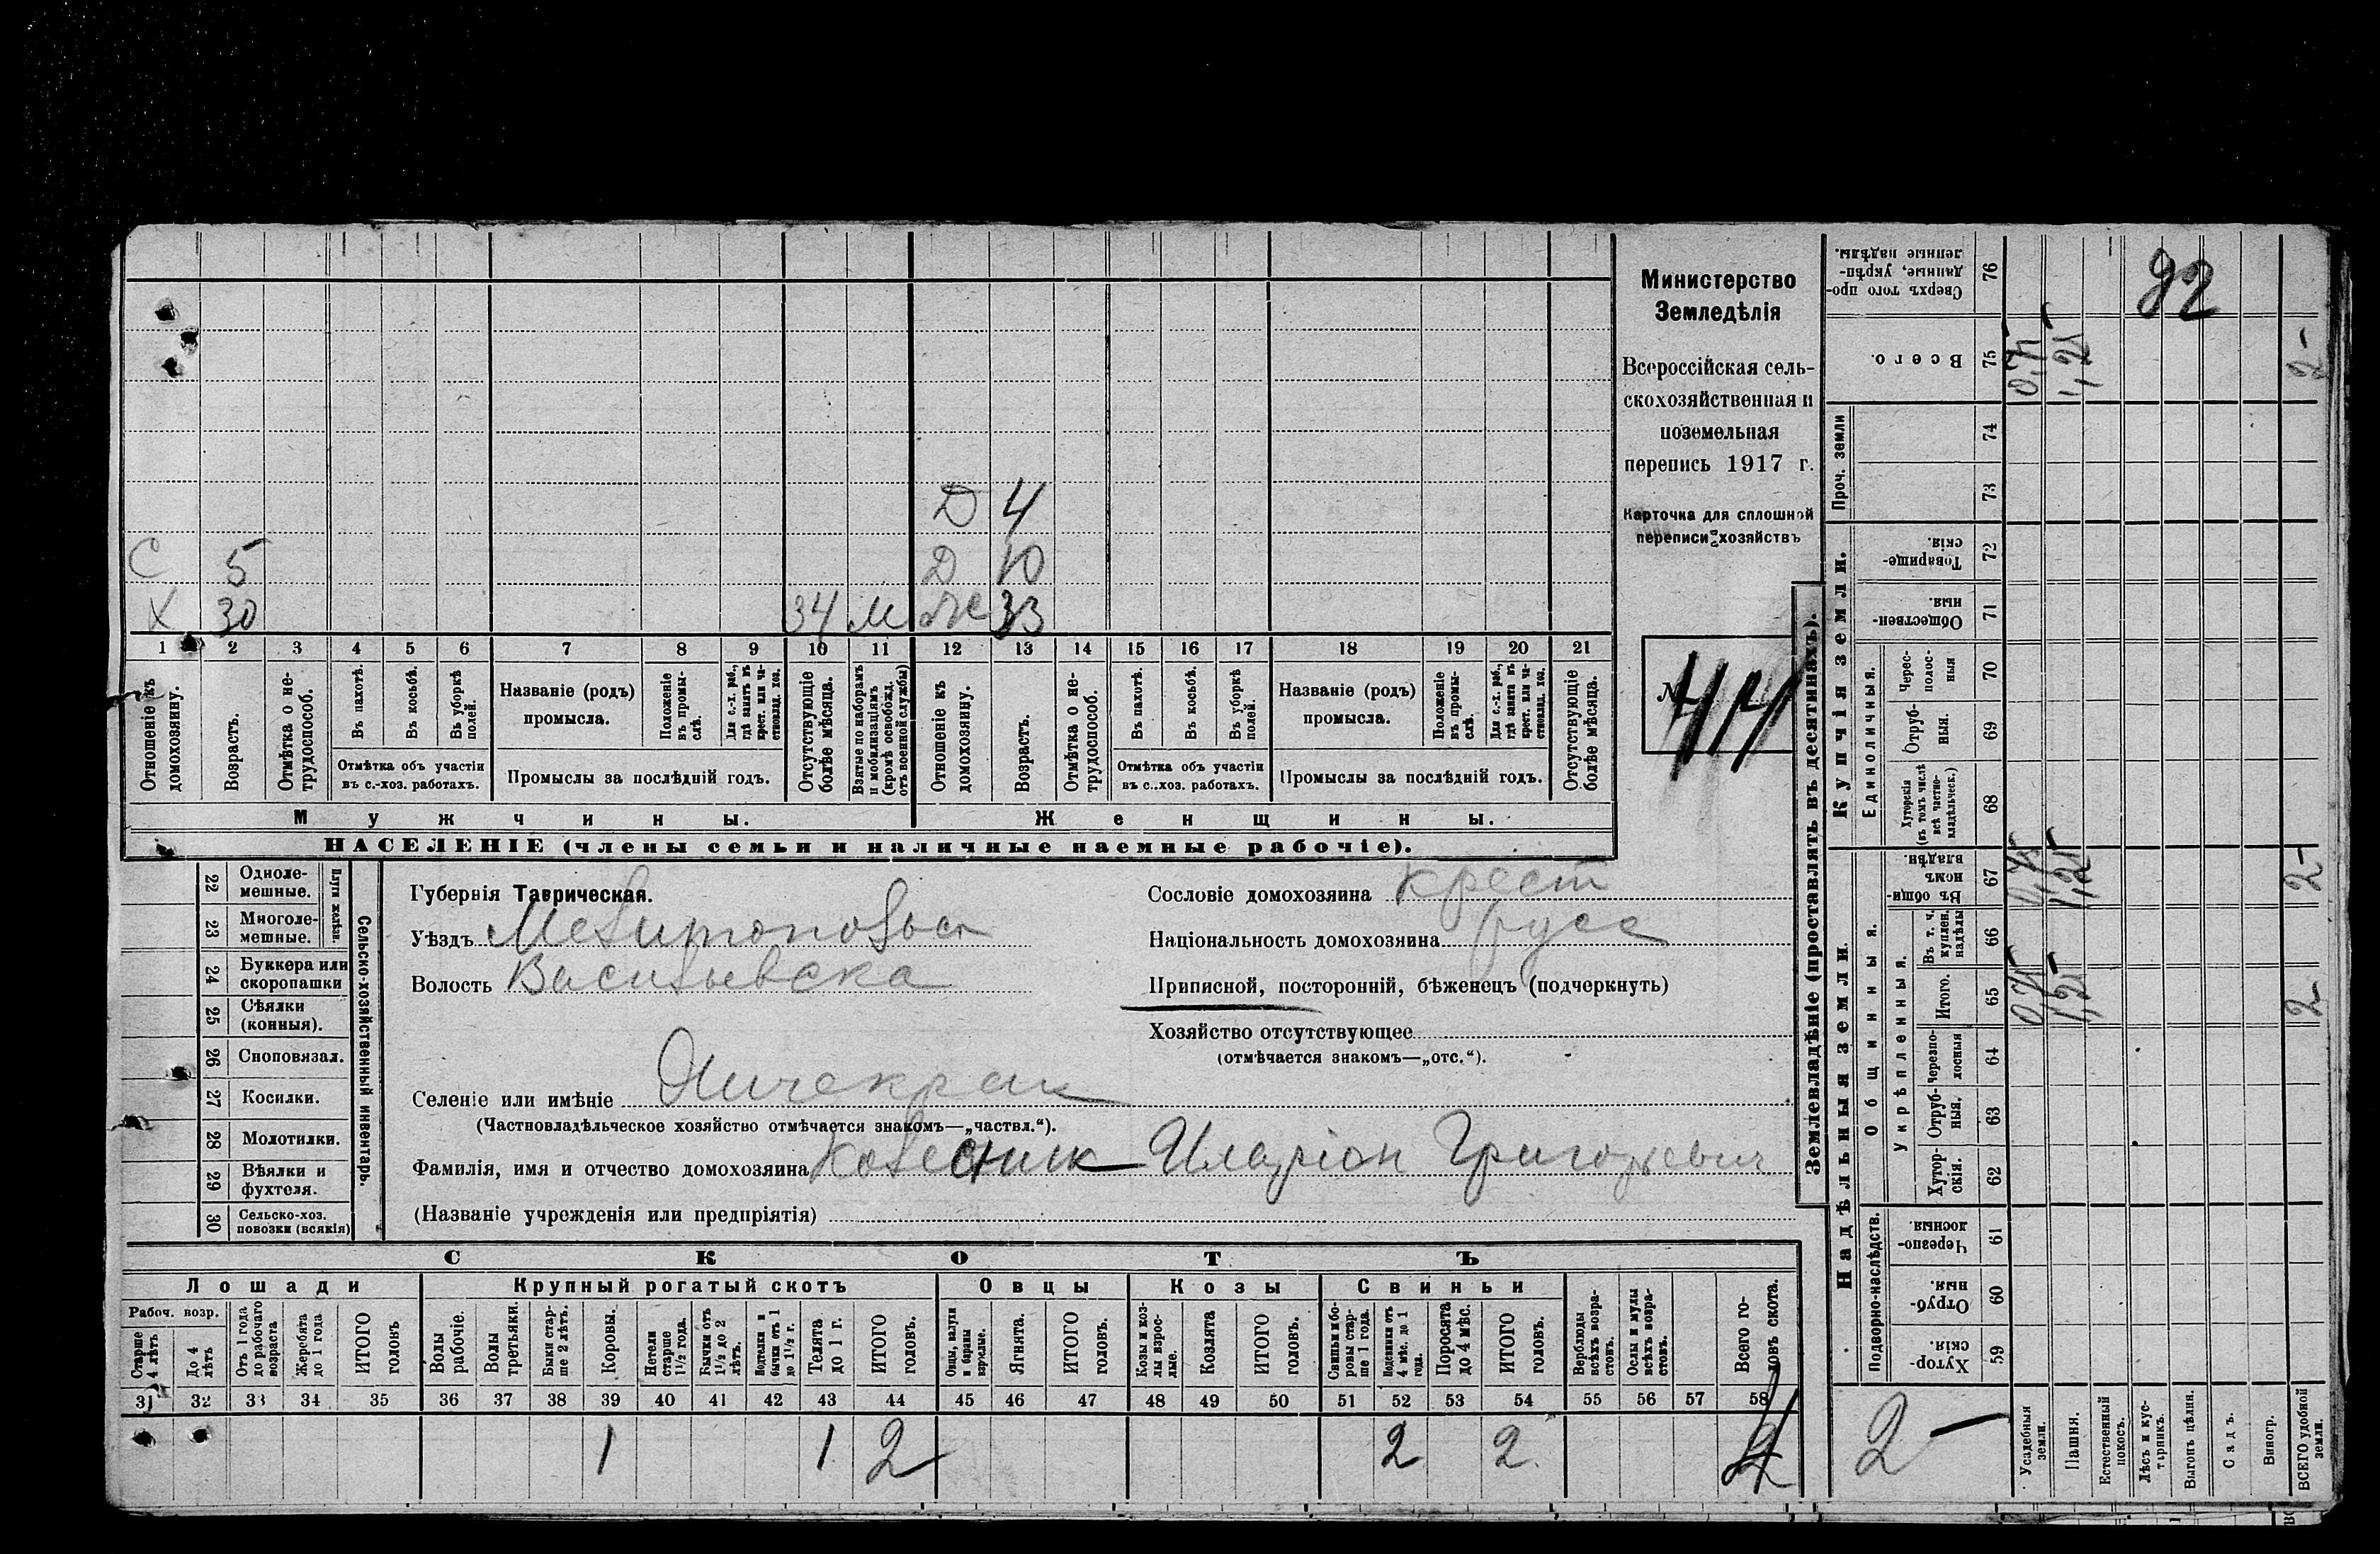 Министерство
Земледѣлія
Всероссійская сель-
скохозяйственная и
поземельная
перепись 1917 г.
Карточка для сплошной
переписи хозяйствъ
№ 414
Д 4
С 5 Д 10
Х 30 34 М Ж 33
1 2 3 4 5 6 7 8 9 10 11 12 13 14 15 16 17 18 19 20 21
Отношеніе къ домохозяину.
Возрастъ.
Отмѣтка о не-трудоспособ.
Въ пахотѣ.
Въ косьбѣ.
Въ уборкѣ полей.
Отмѣтка объ участіи въ с.-хоз. работахъ.
Названіе (родъ) промысла.
Положеніе въ промы-слѣ.
Для с.-х. раб., гдѣ занятъ въ крест. или ча-стновлад. хоз.
Промыслы за послѣдній годъ.
Отсутствующіе болѣе мѣсяца.
Взятые по наборамъ и мобилизаціямъ (кромѣ освобожд. отъ военной службы)
Отношеніе къ домохозяину.
Возрастъ.
Отмѣтка о не-трудоспособ.
Въ пахотѣ.
Въ косьбѣ.
Въ уборкѣ полей.
Отмѣтка объ участіи въ с..хоз. работахъ.
Названіе (родъ) промысла.
Положеніе въ промы-слѣ.
Для с.-х. раб., гдѣ занята въ крест. или ча-стновлад. хоз.
Промыслы за послѣдній годъ.
Отсутствующіе болѣе мѣсяца.
Мужчины. Женщины.
НАСЕЛЕНІЕ (члены семьи и наличные наемные рабочіе).
Сельско-хозяйственный инвентарь.
Плуги желѣзн.
22 Одноле-мешные.
23 Многоле-мешные.
24 Буккера или скоропашки
25 Сѣялки (конныя).
26 Сноповязал.
27 Косилки.
28 Молотилки.
29 Вѣялки и фухтеля.
30 Сельско-хоз. повозки (всякія)
Губернія Таврическая.
Уѣздъ
Волость Васильевска
Селеніе или имѣніе
(Частновладѣльческое хозяйство отмѣчается знакомъ—„частвл.“).
Фамилія, имя и отчество домохозяина Колесник Иларіон Григорьевич
(Названіе учрежденія или предпріятія)
Сословіе домохозяина крест
Національность домохозяина русс
Приписной, посторонній, бѣженецъ (подчеркнуть)
Хозяйство отсутствующее
(отмѣчается знакомъ—„отс.“).
СКОТЪ
Лошади Крупный рогатый скотъ Овцы Козы Свиньи
Рабоч. возр.
Старше 4 лѣтъ
До 4 лѣтъ
Отъ 1 года до рабочаго возраста
Жеребята до 1 года
ИТОГО головъ
Волы рабочіе.
Волы третьяки.
Быки стар-ше 2 лѣтъ.
Коровы.
Нетели старше 1½ года.
Бычки отъ 1½ до 2 лѣтъ.
Подтелки и бычки отъ 1 до 1½ г.
Телята до 1 г.
ИТОГО головъ.
Овцы, валухи и бараны взрослые.
Ягнята.
ИТОГО головъ.
Козы и коз-лы взрос-лые.
Козлята
ИТОГО головъ.
Свиньи и бо-ровы стар-ше 1 года.
Подсвинки отъ 4 мѣс. до 1 года.
Поросята до 4 мѣс.
ИТОГО головъ.
Верблюды всѣхъ возра-стовъ.
Ослы и мулы всѣхъ возра-стовъ.
Всего го-ловъ скота.
31 32 33 34 35 36 37 38 39 40 41 42 43 44 45 46 47 48 49 50 51 52 53 54 55 56 57 58
1 1 2 2 2 4
Землевладѣніе (проставлять въ десятинахъ).
Надѣльныя земли. Купчія земли. Проч. земли
Подворно-наслѣдств. Общинныя. Укрѣпленныя. Единоличныя.
59 Хутор-скія.
60 Отруб-ныя.
61 Черезпо-лосныя.
62 Хутор-скія.
63 Отруб-ныя.
64 Черезпо-лосныя
65 Итого.
66 Въ т. ч. куплен. надѣлы
67 Въ общи-номъ владѣн.
68 Хуторскія (въ томъ числѣ всѣ частно-владѣльческ.)
69 Отруб-ныя.
70 Черес-полос-ныя
71 Обществен-ныя.
72 Товарище-скія.
73
74
75 Всего.
76 Сверхъ того про-данные, укрѣп-ленные надѣлы.
Усадебныя земли.
Пашня.
1,25 1,25 1,25
Естественный покосъ.
Лѣсъ и кус-тарникъ.
Выгонъ цѣлин.
Садъ.
Виногр.
ВСЕГО удобной земли.
2 2 2
92
2